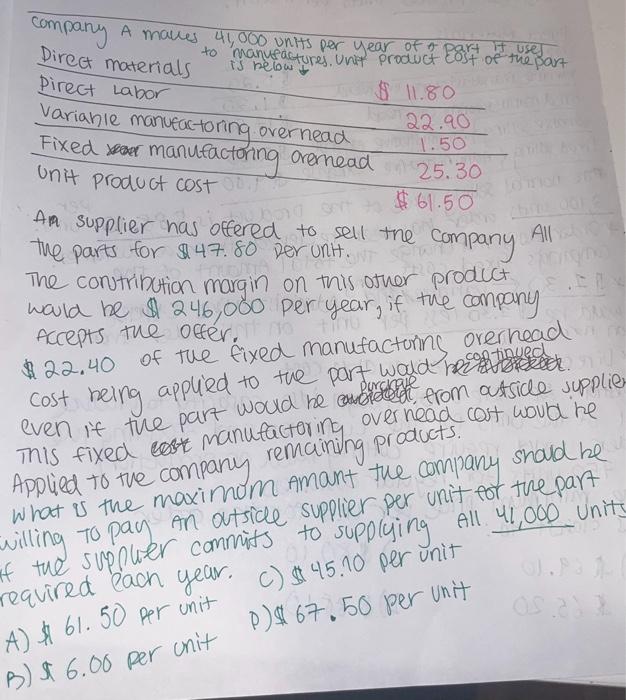 Company A makes 41,000 units per year of a part it uses
to manufactures. Unit product cost of the part
is below ↓
Direct materials $ 11.80
Direct Labor 22.90
Variable manufactoring overhead 1.50
Fixed manufactoring overhead 25.30
Unit product cost $ 61.50
An supplier has offered to sell the company All
the parts for $47.80 per unit.
The contribution margin on this other product
would be $ 246,000 per year, if the company
Accepts the offer.
$22.40 of the fixed manufacturing overhead
cost being applied to the part would be continued
even if the part would be purchase from outside supplier
This fixed manufactoring overhead cost would be
Applied to the company remaining products.
What is the maximum Amant the company should be
willing To pay An outside supplier per unit for the part
if the supplier commits to supplying All 41,000 units
required each year.
A) $ 61.50 per unit
C) $ 45.10 per unit
B) $ 6.00 per unit
D) $ 67.50 per unit